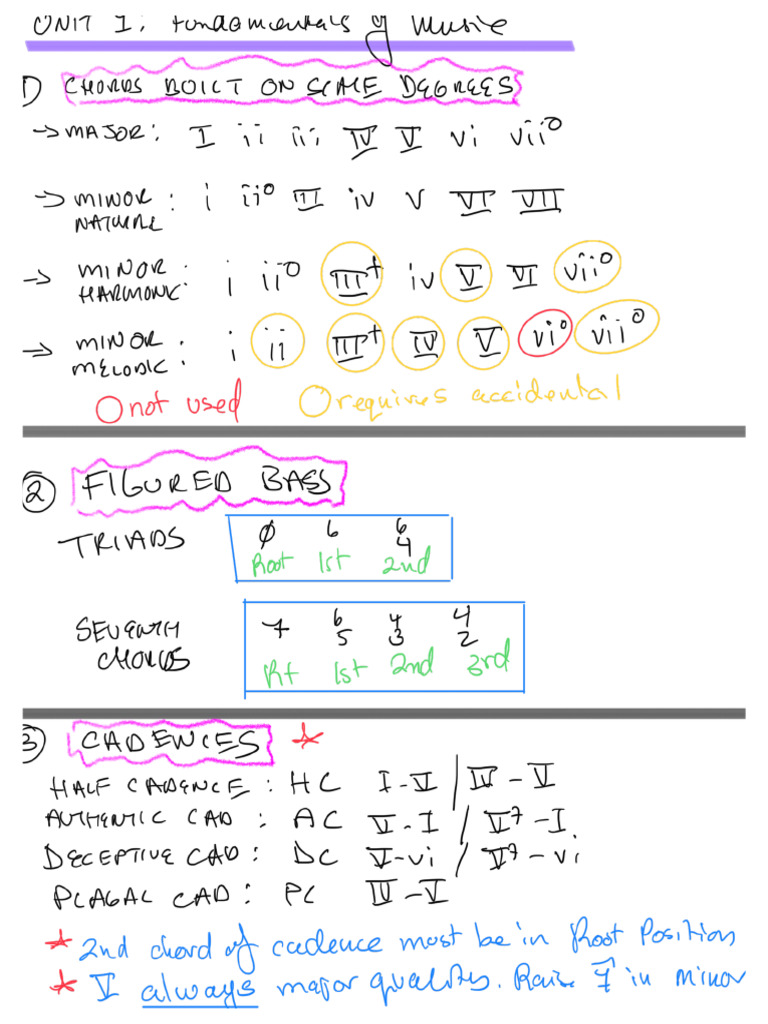 UNIT 1: Fundamentals of Music
1) CHORDS BUILT ON SCALE DEGREES
→ MAJOR: I ii iii IV V vi vii°
→ MINOR NATURAL: i ii° III iv v VI VII
→ MINOR HARMONIC: i ii° III+ iv V VI vii°
→ MINOR MELODIC: i ii III+ IV V vi° vii°
O not used O requires accidental
② FIGURED BASS
TRIADS ∅ 6 6/4
Root 1st 2nd
SEVENTH CHORDS 7 6/5 4/3 4/2
Rt 1st 2nd 3rd
③ CADENCES ★
HALF CADENCE: HC I-V / IV-V
AUTHENTIC CAD: AC V-I / V7-I
DECEPTIVE CAD: DC V-vi / V7-vi
PLAGAL CAD: PC IV-V
★ 2nd chord of cadence must be in Root Position
★ V always major quality. Raise 7̂ in minor